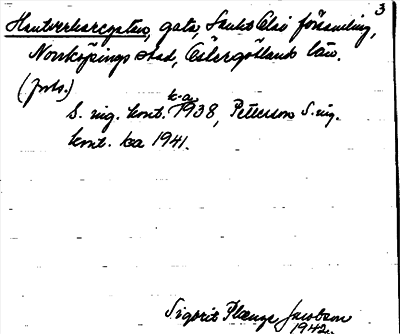 3
Hantverkaregatan, gata, Sankt Olai församling,
Norrköpings stad, Östergötlands län.
(forts.)
S. ing. kont. k-a 1938, Petterson S. ing.
kont. ka 1941.
Sigbrit Plænge Jacobson
1942.